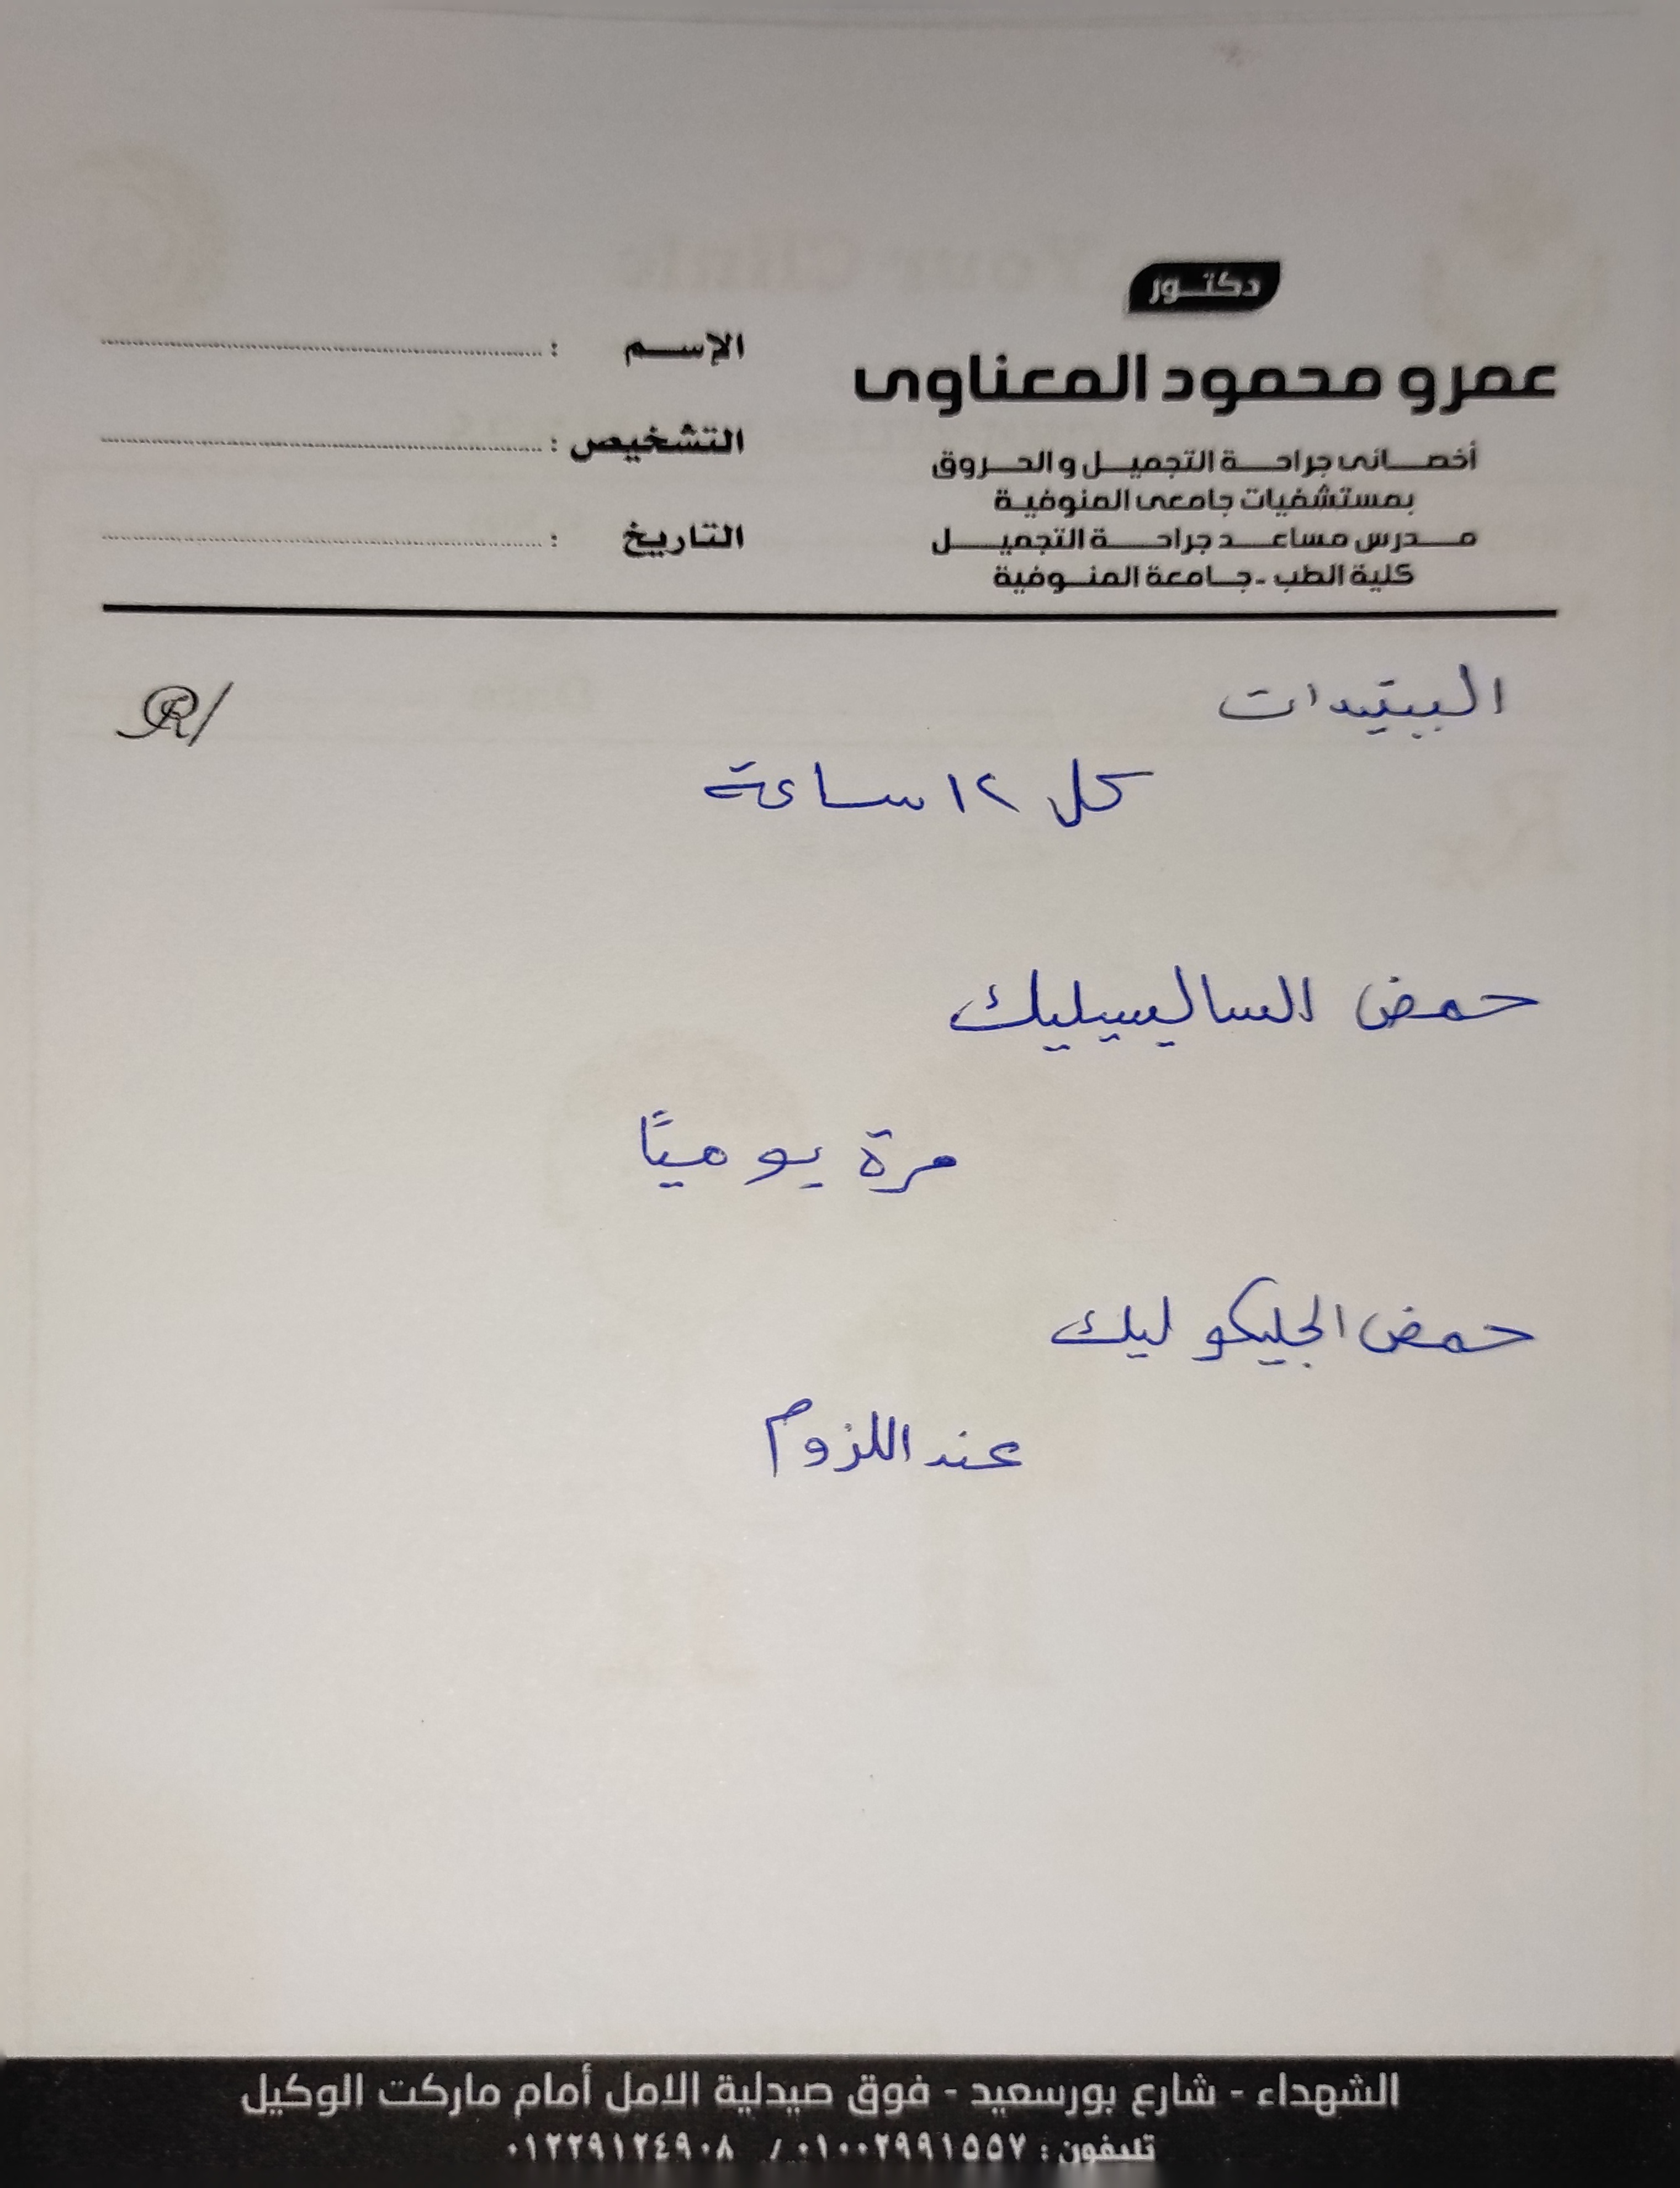 دكتور
عمرو محمود المعناوى
أخصائى جراحة التجميل والحروق
بمستشفيات جامعى المنوفية
مدرس مساعد جراحة التجميل
كلية الطب - جامعة المنوفية
الإسم :
التشخيص :
التاريخ :
R/
الببتيدات
كل ١٢ ساعة
حمض الساليسيليك
مرة يوميًا
حمض الجليكوليك
عند اللزوم
الشهداء - شارع بورسعيد - فوق صيدلية الامل أمام ماركت الوكيل
تليفون : ٠١٠٠٢٩٩١٥٥٧ / ٠١٢٢٩١٢٤٩٠٨